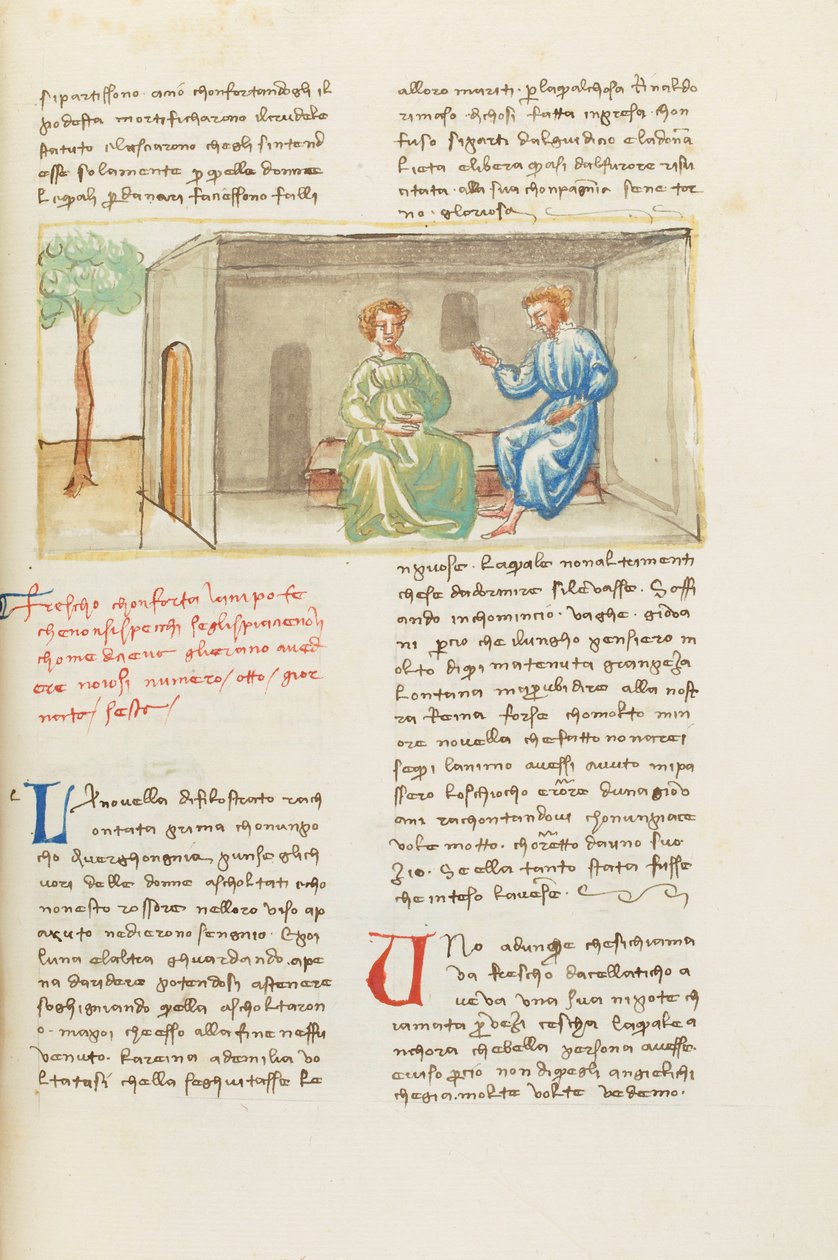 sipartissono. acio chonfortandogli il
podesta mortificharono il crudele
statuto elasciarono chegli sintend
esse solamente p quelle donne
lequali p danari facessono falli
alloro mariti. plaqualchosa Rinaldo
rimaso dichosi fatta inpresa chon
fuso siparti dalguidicio eladona
lieta elibera quasi dalfuocore risu
citata. alla sua chonpagnia sene tor
no. gloriosa
Frescho chonforta lanipote
chenonsispecchi seglispiacienoli
chome diceva glierano aved
ere noiosi numero/ otto/ gior
nata/ sesta/
LAnovella difilostrato rach
ontata prima chonunpo
cho diverghongnia punse glich
uori delle donne ascholtati echo
nonesto rossore nelloro viso ap
aruto nedierono sengnio. Epoi
luna elaltra ghuardando. ape
na daridere potendosi astenere
soghigniando quella ascholtaron
o. mapoi cheesso allafine nessu
venuto. lareina ademilia vo
ltatasi chella seghuitasse le
npuose. laquale nonaltrimenti
chese dadormire silevasse. Soffi
ando inchomincio. vaghe. giova
ni. pcio che ilungho pensiero m
olto dipiu matenuta granpeza
lontana mapubidire alla nost
ra Reina forse chomolto min
ore novella chefatto nonarei
sequi lanimo avessi avuto mipa
ssero loschiocho erore duna giov
ani rachontandovi chonunpiace
vole motto. choretto dauno suo
zio. Se ella tanto stata fusse
che inteso lavese.
UNo adunque chesichiama
va frescho dacellaticho a
veva una sua nipote ch
iamata p vezi cescha laquale a
nchora chebella persona avesse.
eviso pcio non diquegli angielichi
chegia. molte volte vedemo.